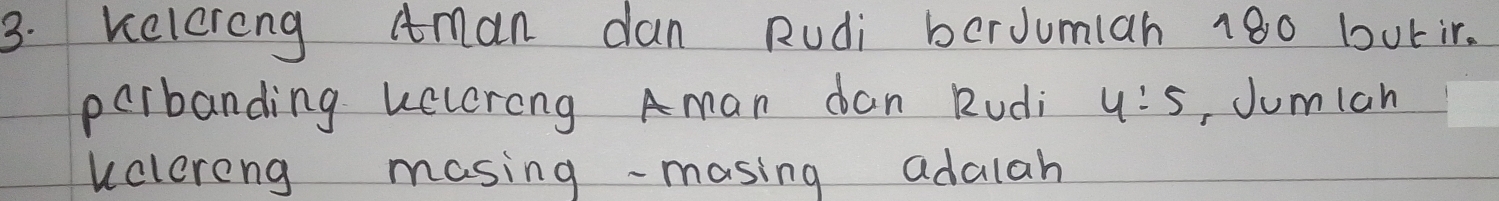 3. Kelereng Aman dan Rudi berJumlah 180 butir.
perbanding kelereng Aman dan Rudi 4:5, Jumlah
kelereng masing-masing adalah